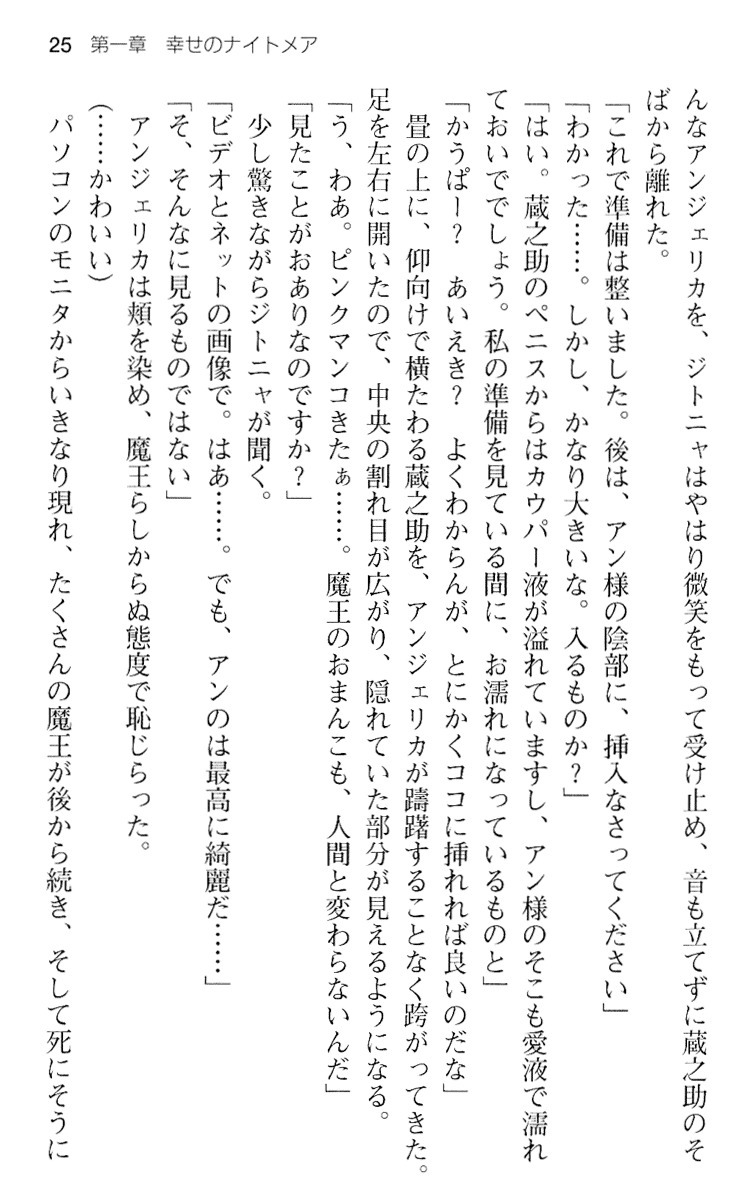 25 第一章　幸せのナイトメア
んなアンジェリカを、ジトニャはやはり微笑をもって受け止め、音も立てずに蔵之助のそ
ばから離れた。
「これで準備は整いました。後は、アン様の陰部に、挿入なさってください」
「わかった……。しかし、かなり大きいな。入るものか？」
「はい。蔵之助のペニスからはカウパー液が溢れていますし、アン様のそこも愛液で濡れ
ておいででしょう。私の準備を見ている間に、お濡れになっているものと」
「かうぱー？　あいえき？　よくわからんが、とにかくココに挿れれば良いのだな」
　畳の上に、仰向けで横たわる蔵之助を、アンジェリカが躊躇することなく跨がってきた。
足を左右に開いたので、中央の割れ目が広がり、隠れていた部分が見えるようになる。
「う、わあ。ピンクマンコきたぁ……。魔王のおまんこも、人間と変わらないんだ」
「見たことがおありなのですか？」
　少し驚きながらジトニャが聞く。
「ビデオとネットの画像で。はあ……。でも、アンのは最高に綺麗だ……」
「そ、そんなに見るものではない」
　アンジェリカは頬を染め、魔王らしからぬ態度で恥じらった。
（……かわいい）
　パソコンのモニタからいきなり現れ、たくさんの魔王が後から続き、そして死にそうに